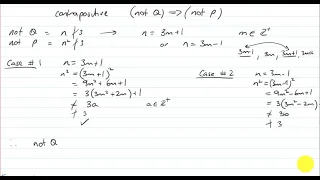 contrapositive (not Q) => (not P)
not Q = n ∤ 3 → n = 3m+1 m ∈ Z⁺
not P = n² ∤ 3 or n = 3m-1
3m-1, 3m, 3m+1,
Case #1 n = 3m+1
n² = (3m+1)²
= 9m² + 6m + 1
= 3(3m² + 2m) + 1
≠ 3a a ∈ Z⁺
∤ 3
✓
Case #2 n = 3m-1
n² = (3m-1)²
= 9m² - 6m + 1
= 3(3m² - 2m)
≠ 3a
∤ 3
∴ not Q